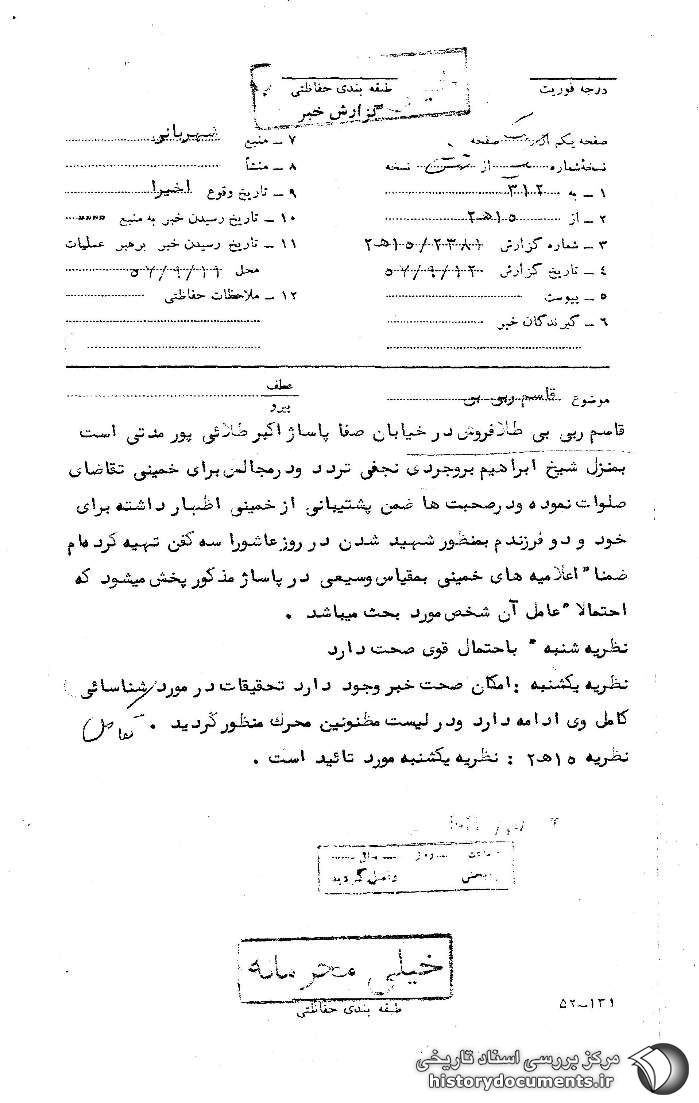 درجه فوریت
طبقه بندی حفاظتی
گزارش خبر
صفحه یکم از یک صفحه
نسخه شماره از نسخه
۱ ـ به ۳۱۲
۲ ـ از ۱۵هـ۲
۳ ـ شماره گزارش ۲۳۸۱/۱۵هـ۲
۴ ـ تاریخ گزارش ۵۷/۹/۱۲
۵ ـ پیوست
۶ ـ گیرندگان خبر
۷ ـ منبع شهربانی
۸ ـ منشأ
۹ ـ تاریخ وقوع اخیرا
۱۰ ـ تاریخ رسیدن خبر به منبع
۱۱ ـ تاریخ رسیدن خبر برهبر عملیات
محل ۵۷/۹/۱۱
۱۲ ـ ملاحظات حفاظتی
موضوع قاسم ربی بی
عطف
پیرو
قاسم ربی بی طلافروش در خیابان صفا پاساژ اکبر طلائی پور مدتی است
بمنزل شیخ ابراهیم بروجردی نجفی تردد ودرمجالس برای خمینی تقاضای
صلوات نموده ودرصحبت ها ضمن پشتیبانی از خمینی اظهار داشته برای
خود و دو فرزندم بمنظور شهید شدن در روز عاشورا سه کفن تهیه کرده ام
ضمنا" اعلامیه های خمینی بمقیاس وسیعی در پاساژ مذکور پخش میشود که
احتمالا" عامل آن شخص مورد بحث میباشد .
نظریه شنبه " باحتمال قوی صحت دارد
نظریه یکشنبه : امکان صحت خبر وجود دارد تحقیقات در مورد شناسائی
کامل وی ادامه دارد ودر لیست مظنونین محرک منظور گردید .
نظریه ۱۵هـ۲ : نظریه یکشنبه مورد تائید است .
خیلی محرمانه
طبقه بندی حفاظتی
۵۲-۱۳۱
مرکز بررسی اسناد تاریخی
historydocuments.ir